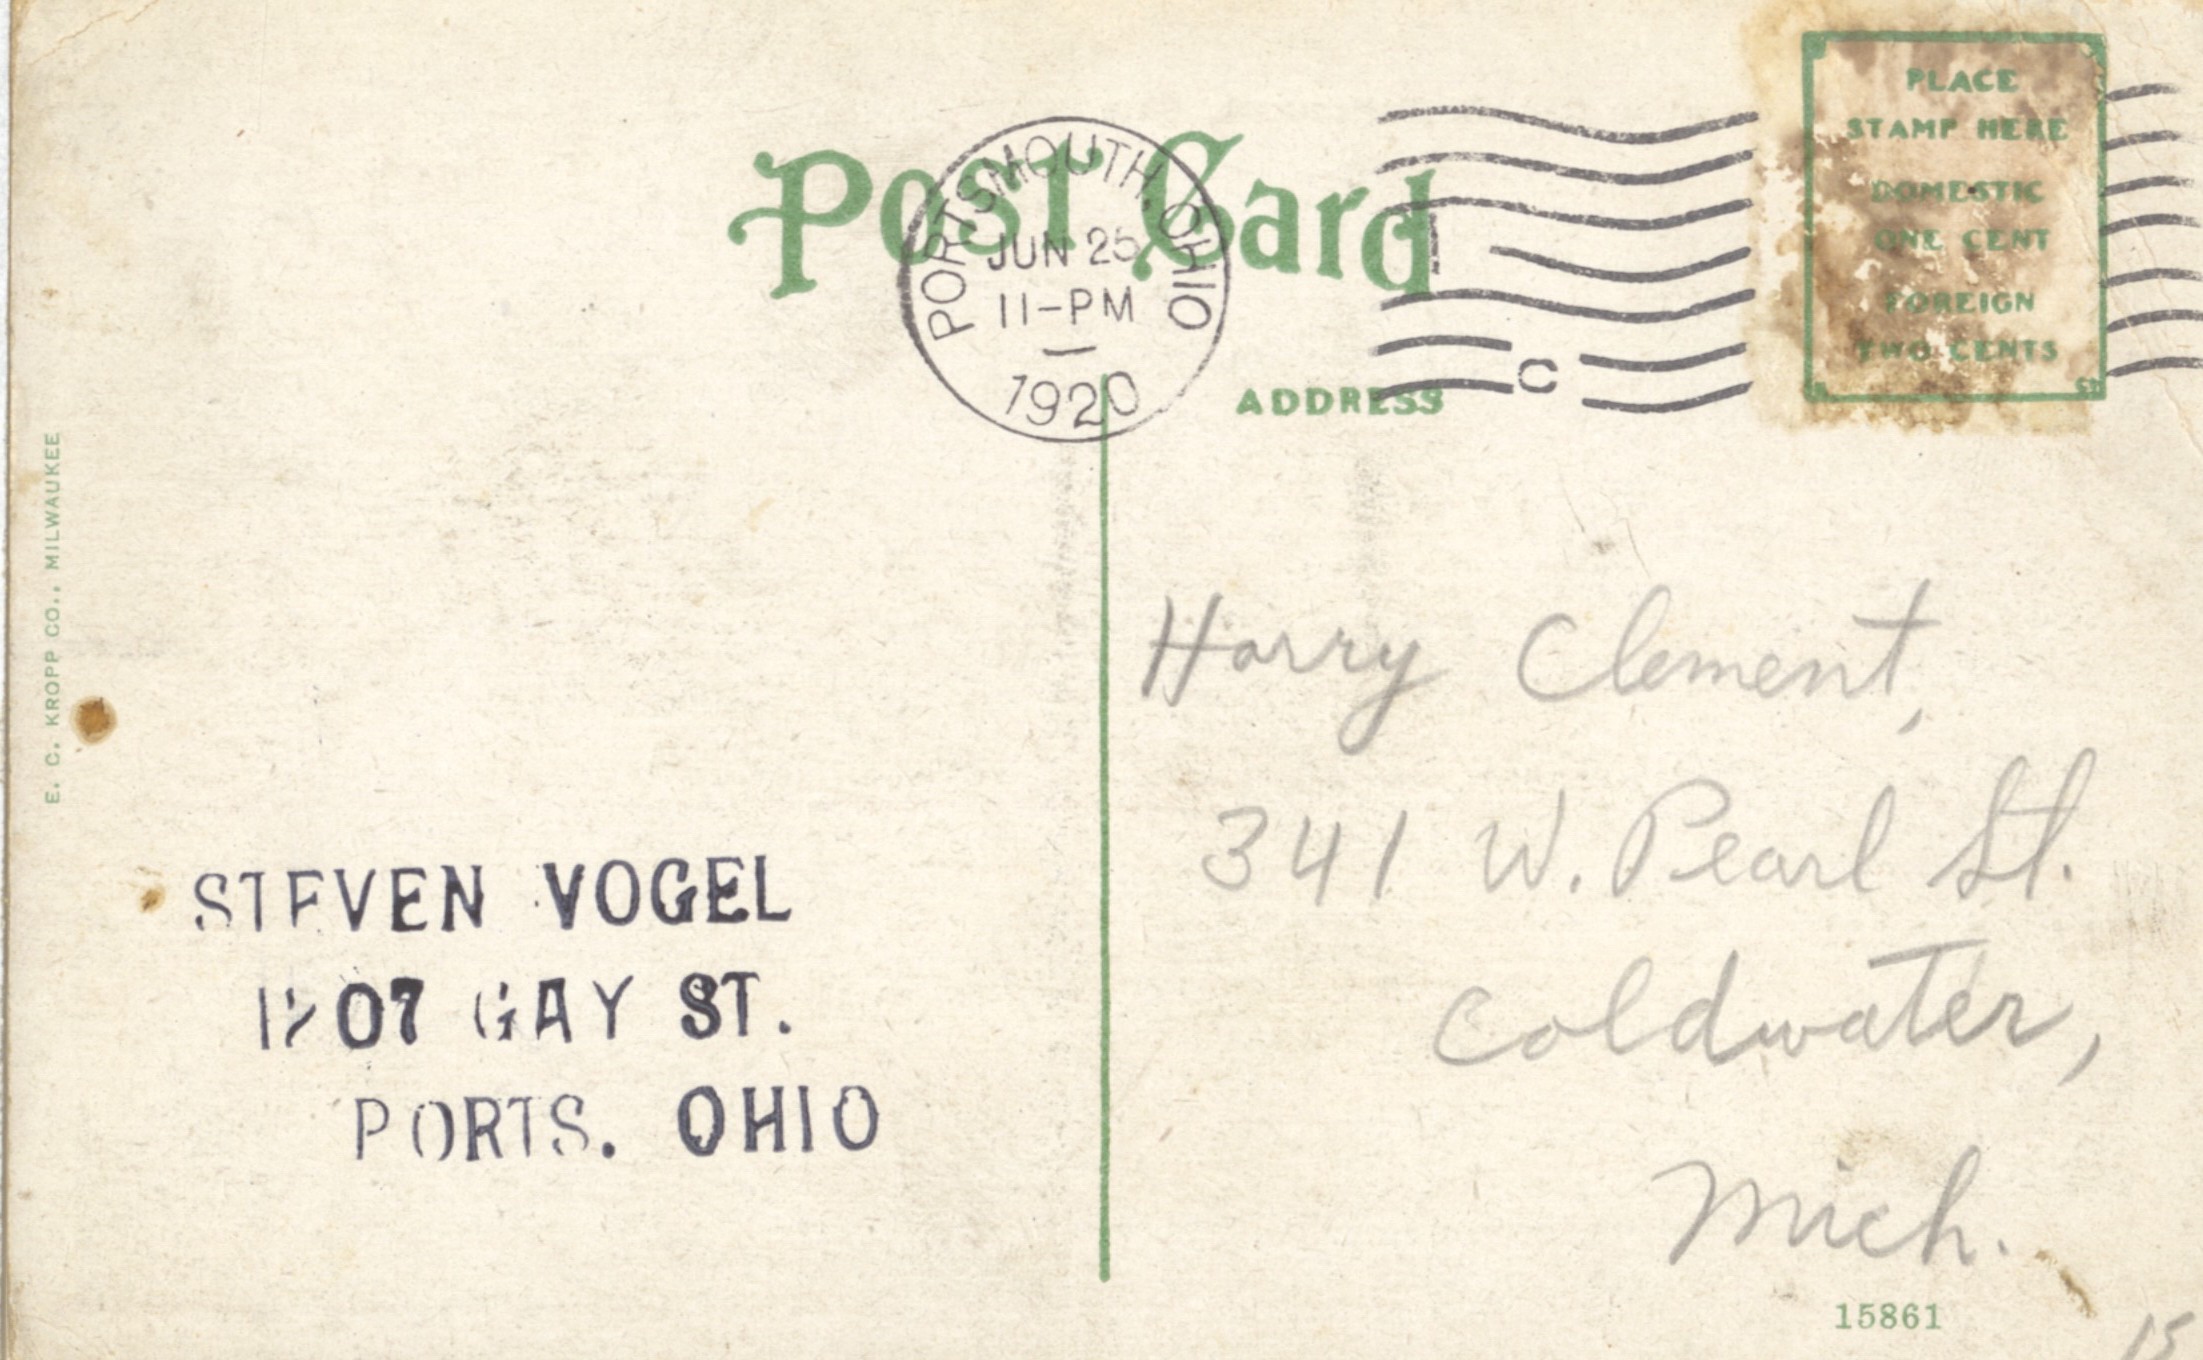 Post Card
PORTSMOUTH, OHIO
JUN 25
11-PM
1920
C
PLACE
STAMP HERE
DOMESTIC
ONE CENT
FOREIGN
TWO CENTS
ADDRESS
E. C. KROPP CO., MILWAUKEE
STEVEN VOGEL
1207 GAY ST.
PORTS. OHIO
Harry Clement,
341 W. Pearl St.
Coldwater,
Mich.
15861
15